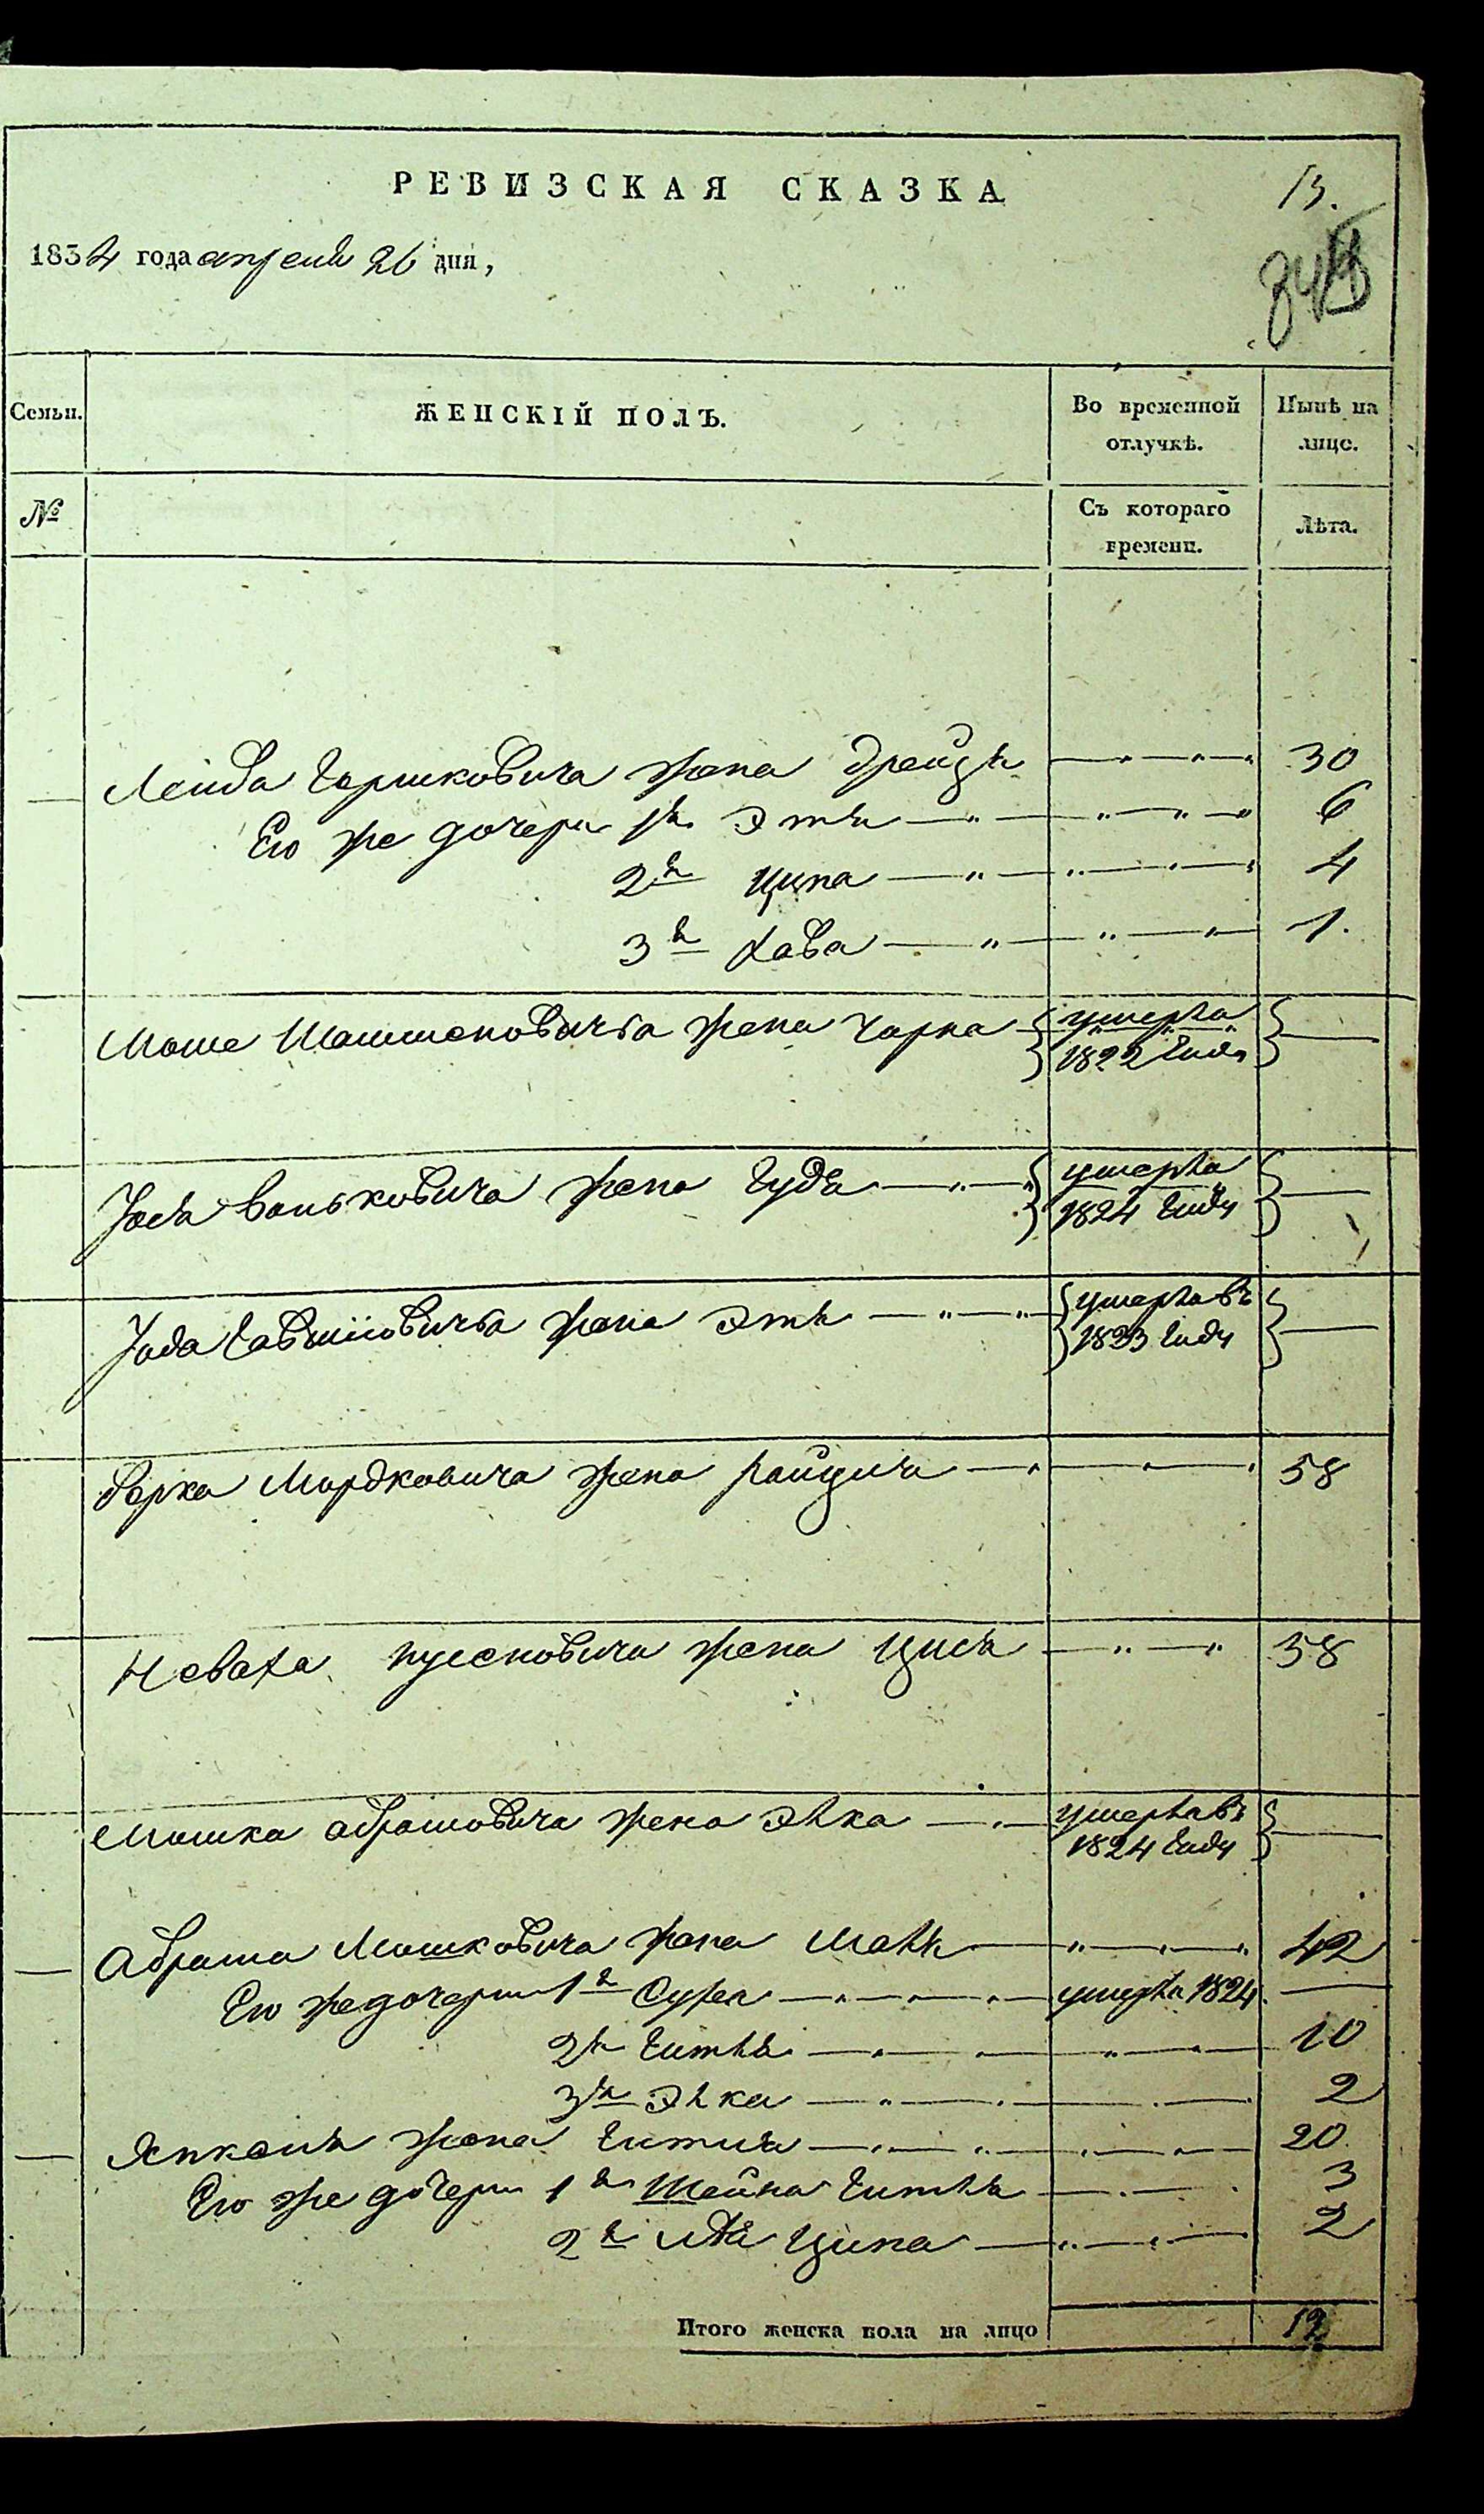 РЕВИЗСКАЯ СКАЗКА
13.
1834 года апреля 26 дня,
Семьи.
ЖЕНСКІЙ ПОЛЪ.
Во временной отлучкѣ.
Нынѣ на лице.
№
Съ котораго времени.
Лѣта.
Лейба Гершковича жена Дрейза 30
Его же дочери 1я Этя 6
2я Ципа 4
3я Хава 1.
Моше жена Чарна умерла 1822 года
Іосля жена Гудя умерла 1824 году
жена Этя умерла въ 1823 году
Берка Мордковича жена 58
Неваха жена 58
Мошка Абрамовича жена Элка умерла въ 1824 году
Абрама Мошковича жена 42
Его же дочери 1я Сура умерла 1824
2я Гитля 10
3я Элка 2
жена 20.
Его же дочери 1я Шейна Гитля 3
2я Ципа 2
Итого женска пола на лицо 12